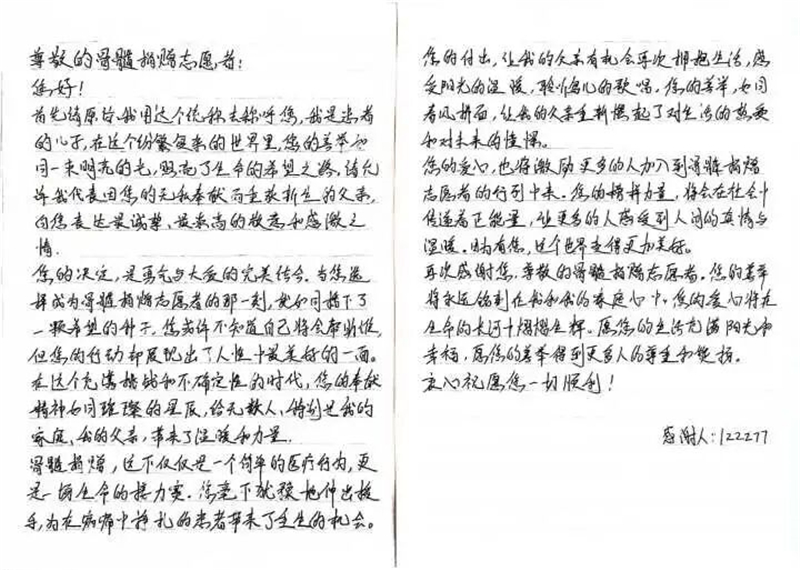 尊敬的骨髓捐赠志愿者：
您好！
首先请原谅我用这个统称去称呼您，我是患者
的儿子，在这个纷繁复杂的世界里，您的善举如
同一束明亮的光，照亮了生命的希望之路，请允
许我代表因您的无私奉献而重获新生的父亲，
向您表达最诚挚、最崇高的敬意和感激之
情．
您的决定，是勇气与大爱的完美结合。当您选
择成为骨髓捐赠志愿者的那一刻，就如同播下了
一颗希望的种子，您或许不知道自己将会帮助谁，
但您的行动却展现出了人性中最美好的一面。
在这个充满挑战和不确定性的时代，您的奉献
精神如同璀璨的星辰，给无数人，特别是我的
家庭、我的父亲，带来了温暖和力量．
骨髓捐赠，这不仅仅是一个简单的医疗行为，更
是一场生命的接力赛。您毫不犹豫地伸出援
手，为在病痛中挣扎的患者带来了重生的机会。
您的付出，让我的父亲有机会再次拥抱生活，感
受阳光的温暖，聆听鸟儿的歌唱。您的善举，如同
春风拂面，让我的父亲重新燃起了对生活的热爱
和对未来的憧憬。
您的爱心，也将激励更多的人加入到骨髓捐赠
志愿者的行列中来。您的榜样力量，将会在社会中
传递着正能量，让更多的人感受到人间的真情与
温暖。因为有您，这个世界变得更加美好。
再次感谢您，尊敬的骨髓捐赠志愿者。您的善举
将永远铭刻在我和我的家庭心中，您的爱心将在
生命的长河中熠熠生辉。愿您的生活充满阳光和
幸福，愿您的善举得到更多人的尊重和赞扬。
衷心祝愿您一切顺利！
感谢人：122277